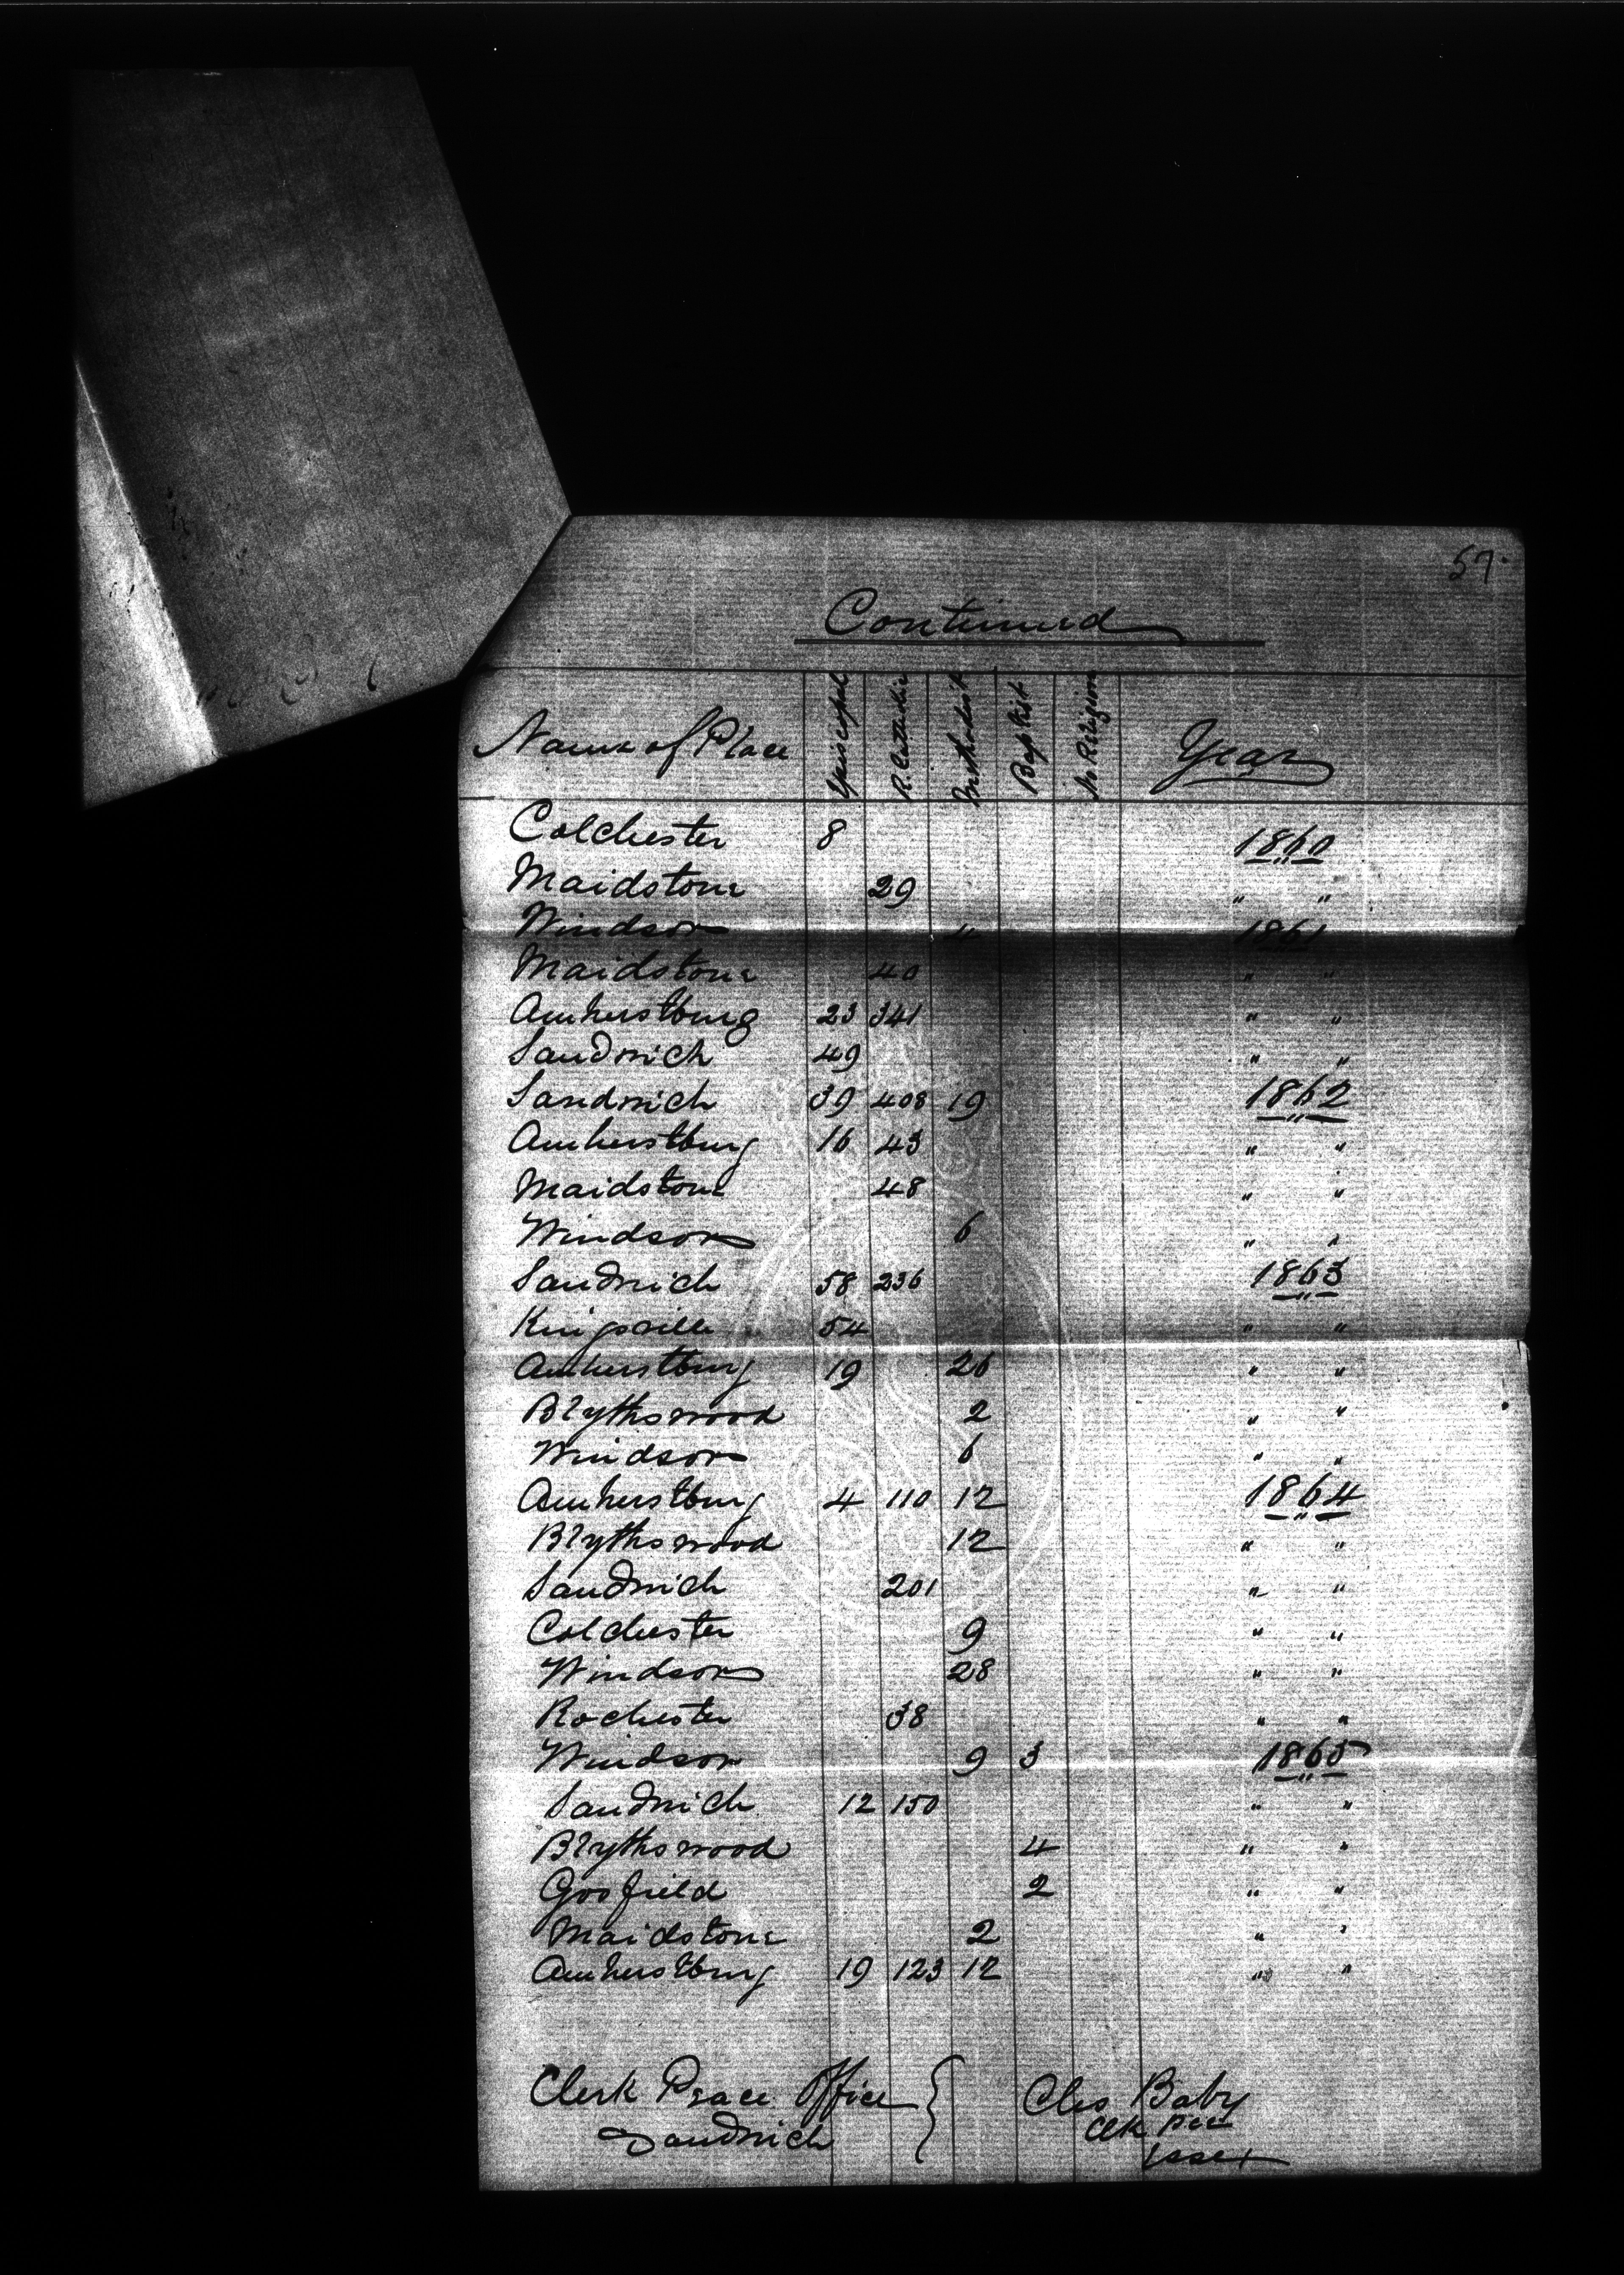 57.
Continued
Name of Place Episcopal R. Catholic Methodist Baptist No Religion Year
Colchester 8 1860
Maidstone 29 " "
Windsor 4 1861
Maidstone 40 " "
Amherstburg 23 341 " "
Sandwich 49 " "
Sandwich 39 408 19 1862
Amherstburg 16 43 " "
Maidstone 48 " "
Windsor 6 " "
Sandwich 58 236 1863
Kingsville 54 " "
Amherstburg 19 26 " "
Blythswood 2 " "
Windsor 6 " "
Amherstburg 4 110 12 1864
Blythswood 12 " "
Sandwich 201 " "
Colchester 9 " "
Windsor 28 " "
Rochester 38 " "
Windsor 9 3 1865
Sandwich 12 150 " "
Blythswood 4 " "
Gosfield 2 " "
Maidstone 2 " "
Amherstburg 19 123 12 " "
Clerk Peace Office } Chs Baby
Sandwich Clk Pce
Essex